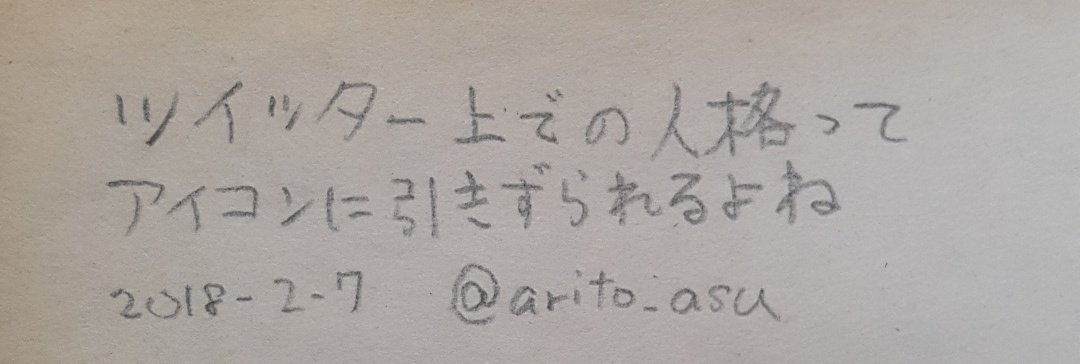 ツイッター上での人格って
アイコンに引きずられるよね
2018-2-7 @arito_asu